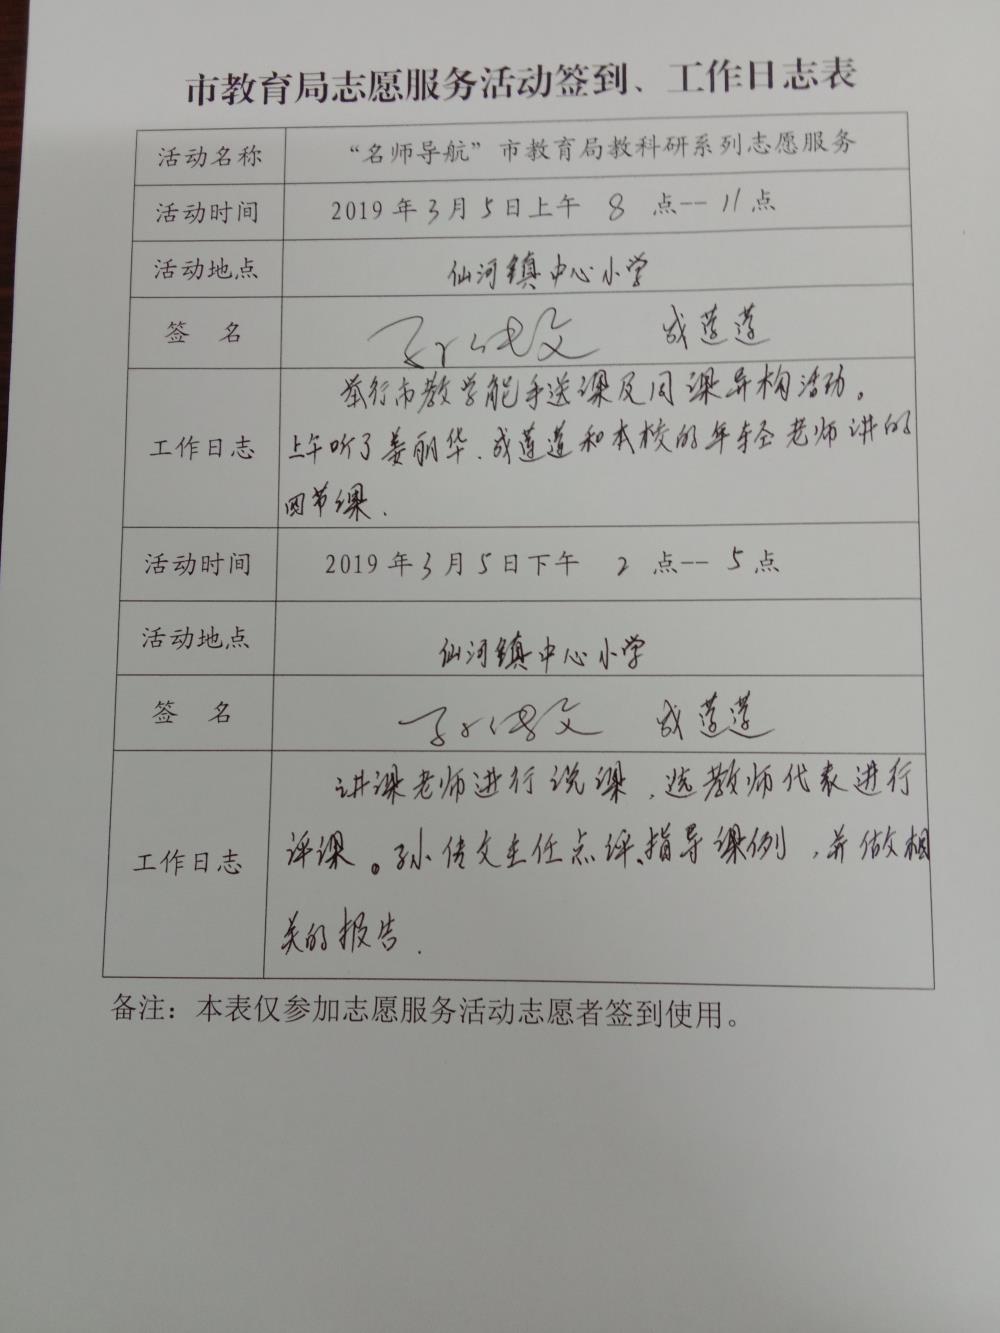 市教育局志愿服务活动签到、工作日志表
活动名称 “名师导航”市教育局教科研系列志愿服务
活动时间 2019年3月5日上午 8 点--11点
活动地点 仙河镇中心小学
签 名 孙传文 成莲莲
举行市教学能手送课及同课异构活动。
工作日志 上午听了姜丽华、成莲莲和本校的年轻老师讲的
四节课.
活动时间 2019年3月5日下午 2 点--5点
活动地点 仙河镇中心小学
签 名 孙传文 成莲莲
讲课老师进行说课,选教师代表进行
评课。孙传文主任点评、指导课例,并做相
工作日志
关的报告.
备注:本表仅参加志愿服务活动志愿者签到使用。